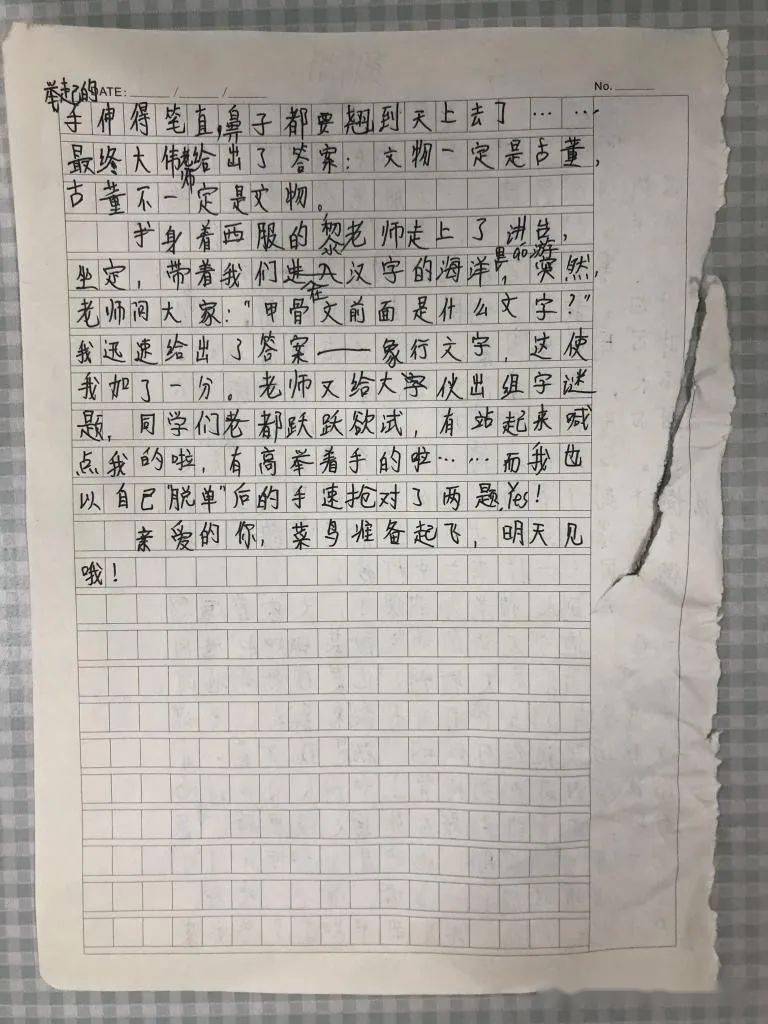 举起的 DATE: ____ / ____ / ____ No. ____
手伸得笔直,鼻子都要翘到天上去了……
最终大伟老师给出了答案:文物一定是古董,
古董不一定是文物。
身着西服的黎老师走上了讲台,
坐定,带着我们在汉字的海洋里遨游,突然,
老师问大家:"甲骨文前面是什么文字?"
我迅速给出了答案——象行文字,这使
我加了一分。老师又给大伙出组字谜
题,同学们老都跃跃欲试,有站起来喊
点我的啦,有高举着手的啦……而我也
以自己"脱单"后的手速抢对了两题,Yes!
亲爱的你,菜鸟准备起飞,明天见
哦!